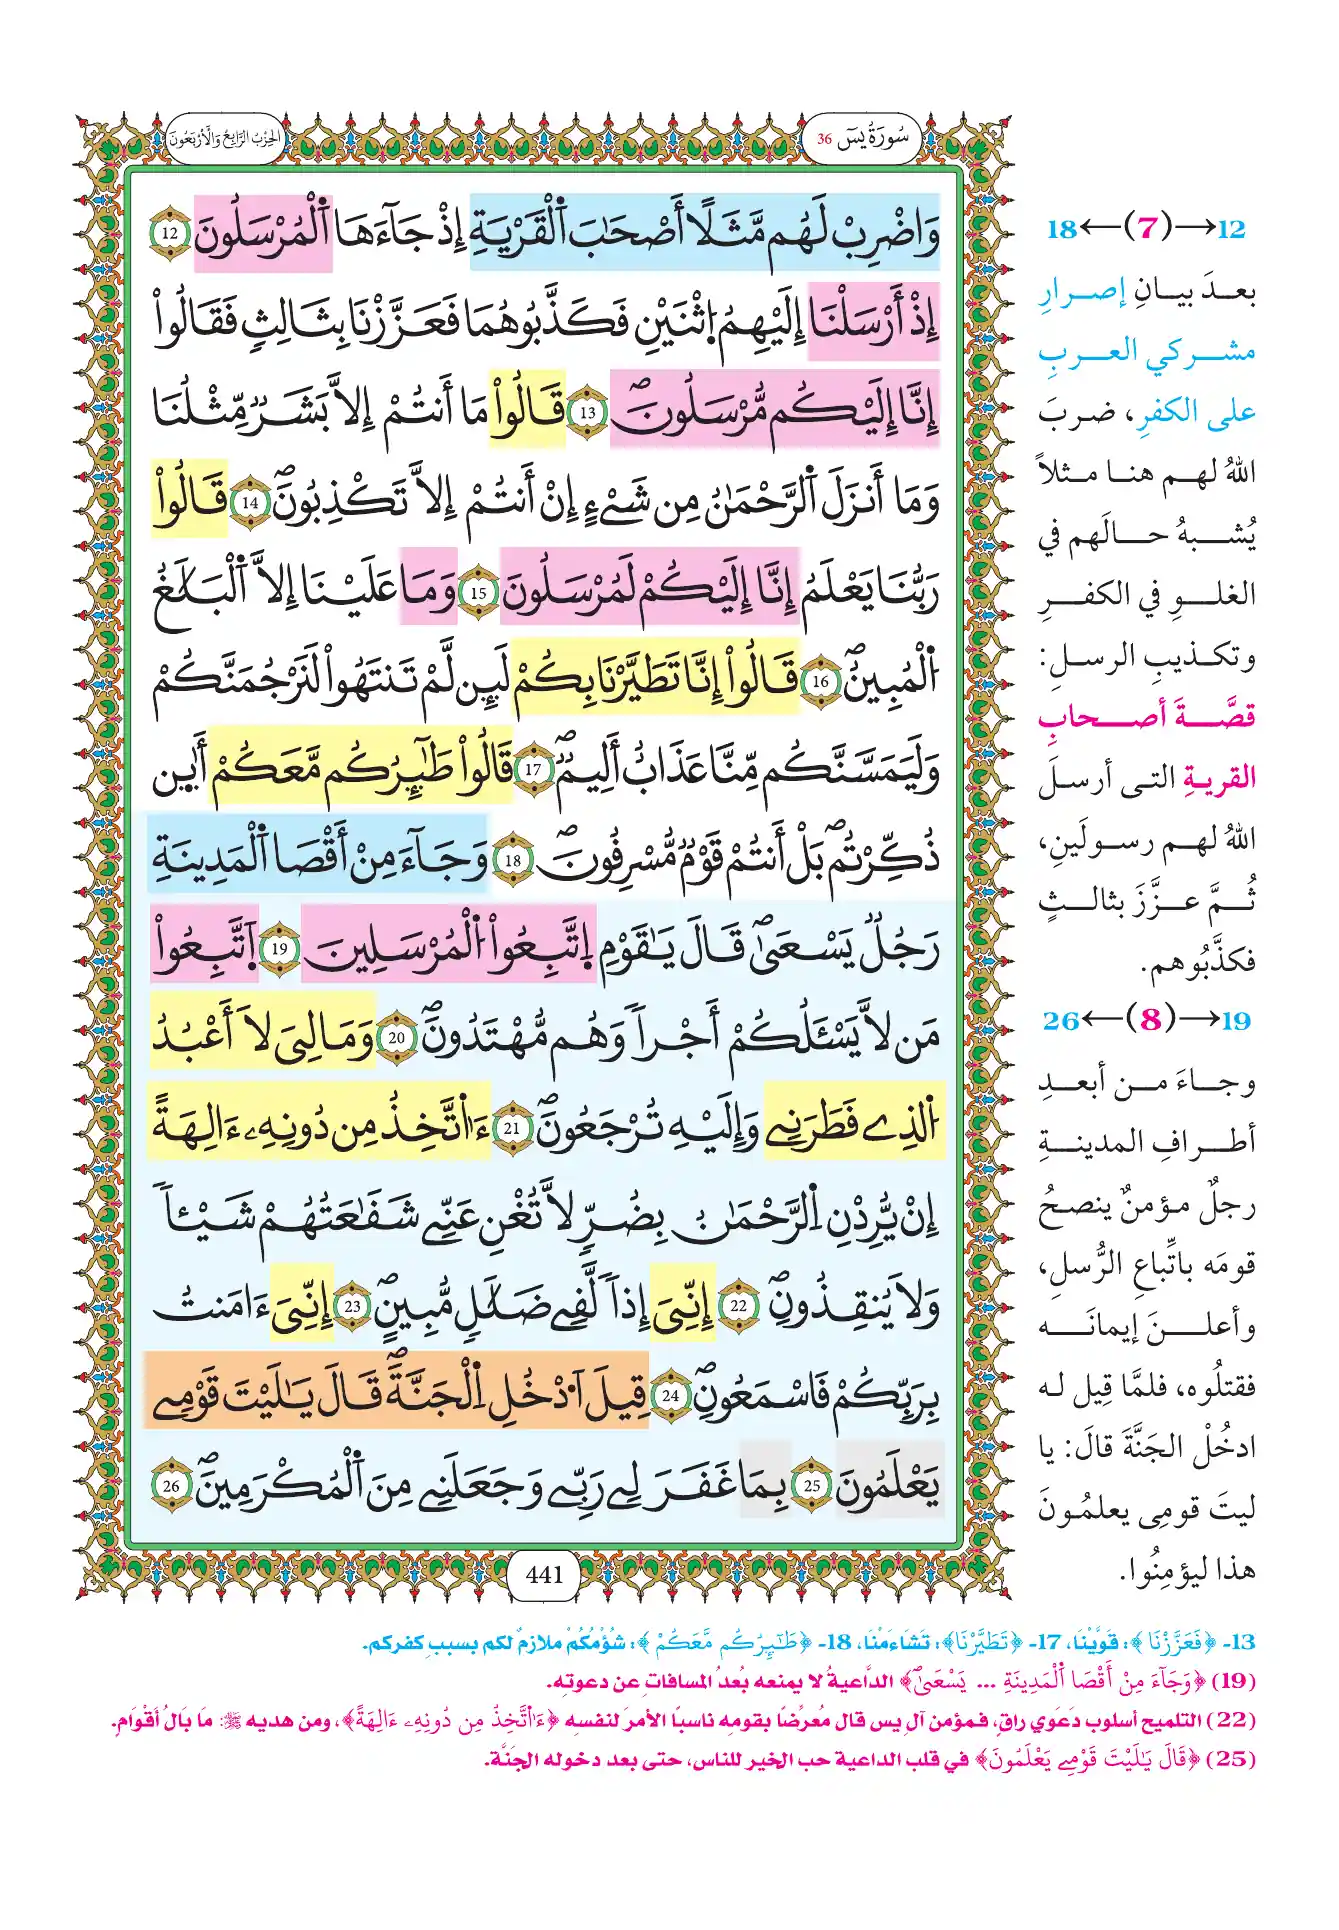 سُورَةُ يسٓ 36
الحِزْبُ الرَّابِعُ وَالْأَرْبَعُونَ
وَاضْرِبْ لَهُم مَّثَلًا أَصْحَٰبَ اَ۬لْقَرْيَةِ إِذْ جَآءَهَا اَ۬لْمُرْسَلُونَ 12
إِذْ أَرْسَلْنَا إِلَيْهِمُ اُ۪ثْنَيْنِ فَكَذَّبُوهُمَا فَعَزَّزْنَا بِثَالِثٍ فَقَالُوٓاْ
إِنَّا إِلَيْكُم مُّرْسَلُونَۖ 13 قَالُواْ مَا أَنتُمْ إِلَّا بَشَرٌ مِّثْلُنَا
وَمَا أَنزَلَ اَ۬لرَّحْمَٰنُ مِن شَےْءٍ إِنْ أَنتُمْ إِلَّا تَكْذِبُونَۖ 14 قَالُواْ
رَبُّنَا يَعْلَمُ إِنَّا إِلَيْكُمْ لَمُرْسَلُونَ 15 وَمَا عَلَيْنَا إِلَّا اَ۬لْبَلَٰغُ
اُ۬لْمُبِينُۖ 16 قَالُواْ إِنَّا تَطَيَّرْنَا بِكُمْ لَئِن لَّمْ تَنتَهُواْ لَنَرْجُمَنَّكُمْ
وَلَيَمَسَّنَّكُم مِّنَّا عَذَابٌ أَلِيمٌۖ 17 قَالُواْ طَٰٓئِرُكُم مَّعَكُمْ أَيْن
ذُكِّرْتُمۖ بَلْ أَنتُمْ قَوْمٌ مُّسْرِفُونَۖ 18 وَجَآءَ مِنْ أَقْصَا اَ۬لْمَدِينَةِ
رَجُلٌ يَسْعَىٰۖ قَالَ يَٰقَوْمِ اِ۪تَّبِعُواْ اُ۬لْمُرْسَلِينَ 19 اَ۪تَّبِعُواْ
مَن لَّا يَسْـَٔلُكُمْ أَجْراً وَهُم مُّهْتَدُونَۖ 20 وَمَا لِيَ لَا أَعْبُدُ
اُ۬لذِے فَطَرَنِے وَإِلَيْهِ تُرْجَعُونَۖ 21 ءَآتَّخِذُ مِن دُونِهِۦ ءَالِهَةً
إِنْ يُّرِدْنِ اِ۬لرَّحْمَٰنُ بِضُرٍّ لَّا تُغْنِ عَنِّے شَفَٰعَتُهُمْ شَيْـٔاً
وَلَا يُنقِذُونِۖ 22 إِنِّيَ إِذاً لَّفِے ضَلَٰلٍ مُّبِينٍۖ 23 إِنِّيَ ءَامَنتُ
بِرَبِّكُمْ فَاسْمَعُونِۖ 24 قِيلَ اَ۟دْخُلِ اِ۬لْجَنَّةَۖ قَالَ يَٰلَيْتَ قَوْمِے
يَعْلَمُونَ 25 بِمَا غَفَرَ لِے رَبِّے وَجَعَلَنِے مِنَ اَ۬لْمُكْرَمِينَۖ 26
441
12→(7)←18
بعدَ بيانِ إصرارِ
مشركي العربِ
على الكفرِ، ضربَ
اللهُ لهم هنا مثلاً
يُشبهُ حالَهم في
الغلوِ في الكفرِ
وتكذيبِ الرسلِ:
قصَّةَ أصحابِ
القريةِ التى أرسلَ
اللهُ لهم رسولَينِ،
ثُمَّ عزَّزَ بثالثٍ
فكذَّبُوهم.
19→(8)←26
وجاءَ من أبعدِ
أطرافِ المدينةِ
رجلٌ مؤمنٌ ينصحُ
قومَه باتِّباعِ الرُّسلِ،
وأعلنَ إيمانَه
فقتلُوه، فلمَّا قِيل له
ادخُلْ الجَنَّةَ قالَ: يا
ليتَ قومِى يعلمُونَ
هذا ليؤمِنُوا.
13- ﴿فَعَزَّزْنَا﴾: قَوَّيْنَا، 17- ﴿تَطَيَّرْنَا﴾: تَشَاءَمْنَا، 18- ﴿طَٰٓئِرُكُم مَّعَكُمْ﴾: شُؤْمُكُمْ ملازمٌ لكم بسببِ كفركم.
(19) ﴿وَجَآءَ مِنْ أَقْصَا اَ۬لْمَدِينَةِ ... يَسْعَىٰۖ﴾ الدَّاعيةُ لا يمنعه بُعدُ المسافاتِ عن دعوتِه.
(22) التلميح أسلوب دَعَوي راقٍ، فمؤمن آلِ يس قال مُعرِّضًا بقومِه ناسبًا الأمرَ لنفسِه ﴿ءَآتَّخِذُ مِن دُونِهِۦ ءَالِهَةً﴾، ومن هديه ﷺ: مَا بَالُ أَقْوَامٍ.
(25) ﴿قَالَ يَٰلَيْتَ قَوْمِے يَعْلَمُونَ﴾ في قلب الداعية حب الخير للناس، حتى بعد دخوله الجَنَّة.